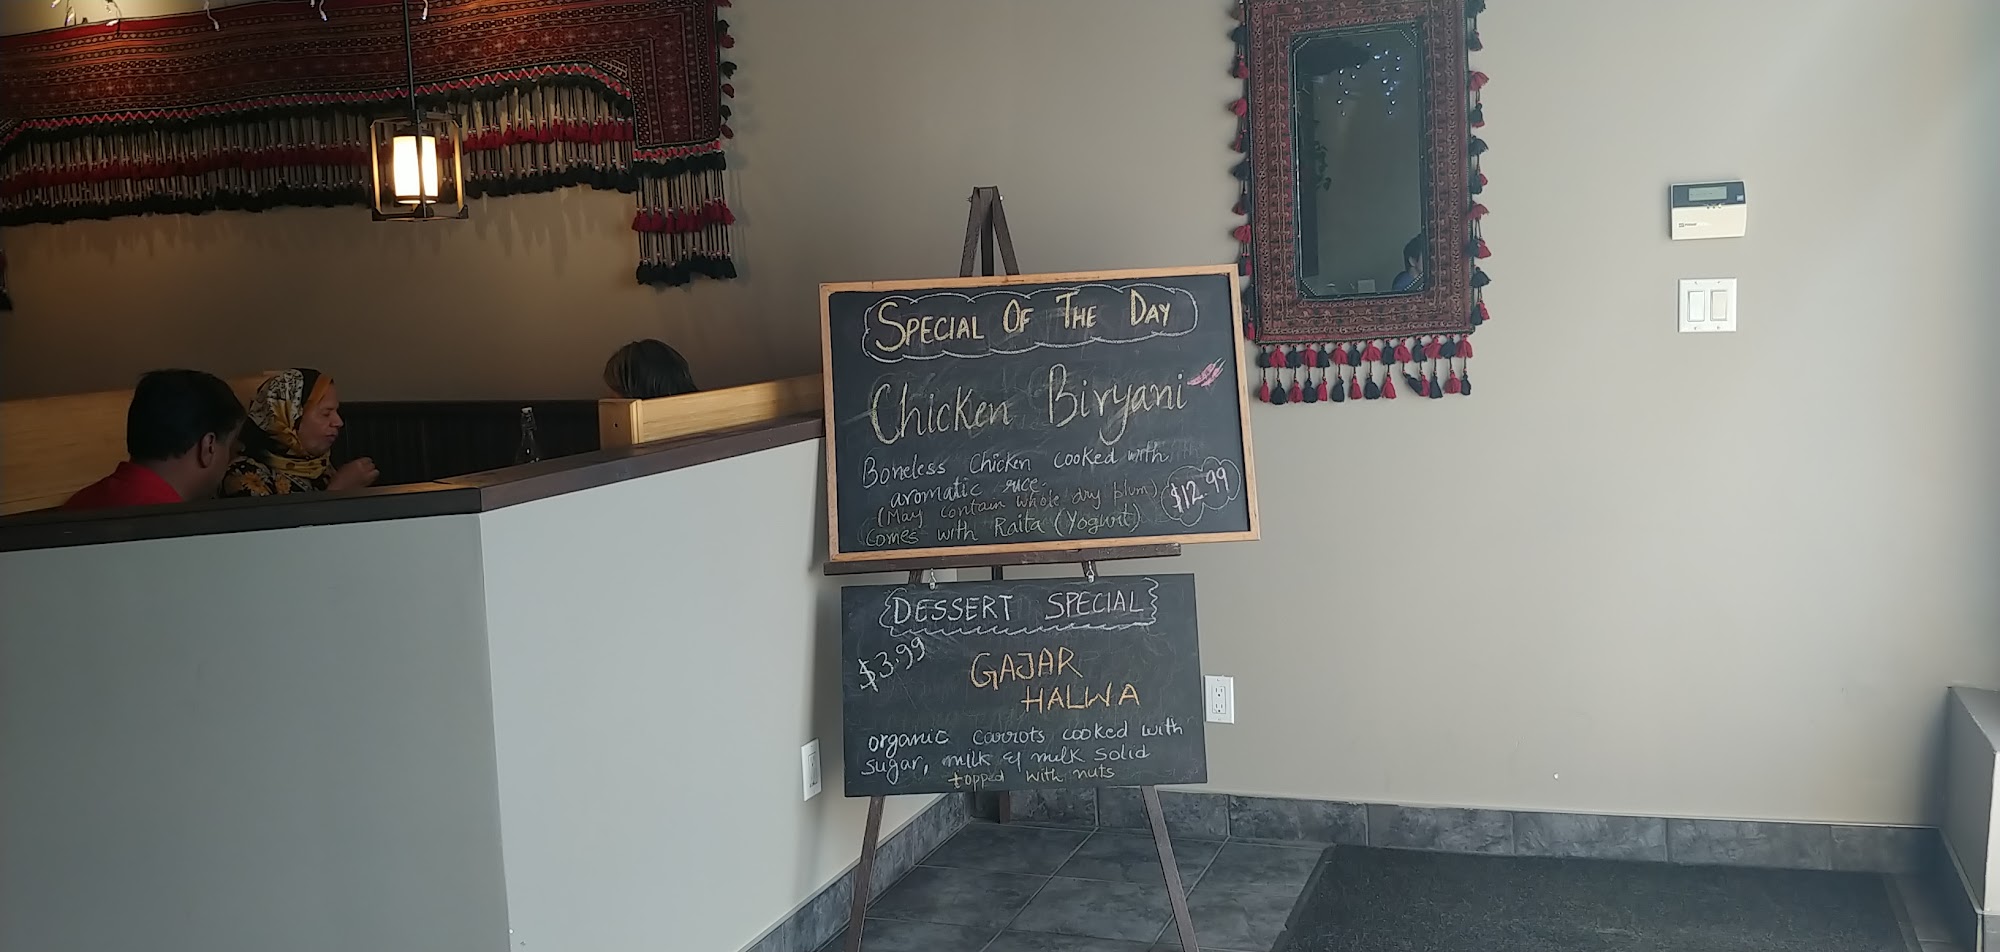 SPECIAL OF THE DAY
Chicken Biryani
Boneless Chicken cooked with
aromatic rice.
(May contain whole dry plum)
$12.99
Comes with Raita (Yogurt)
DESSERT SPECIAL
$3.99
GAJAR
HALWA
organic carrots cooked with
sugar, milk & milk solid
topped with nuts